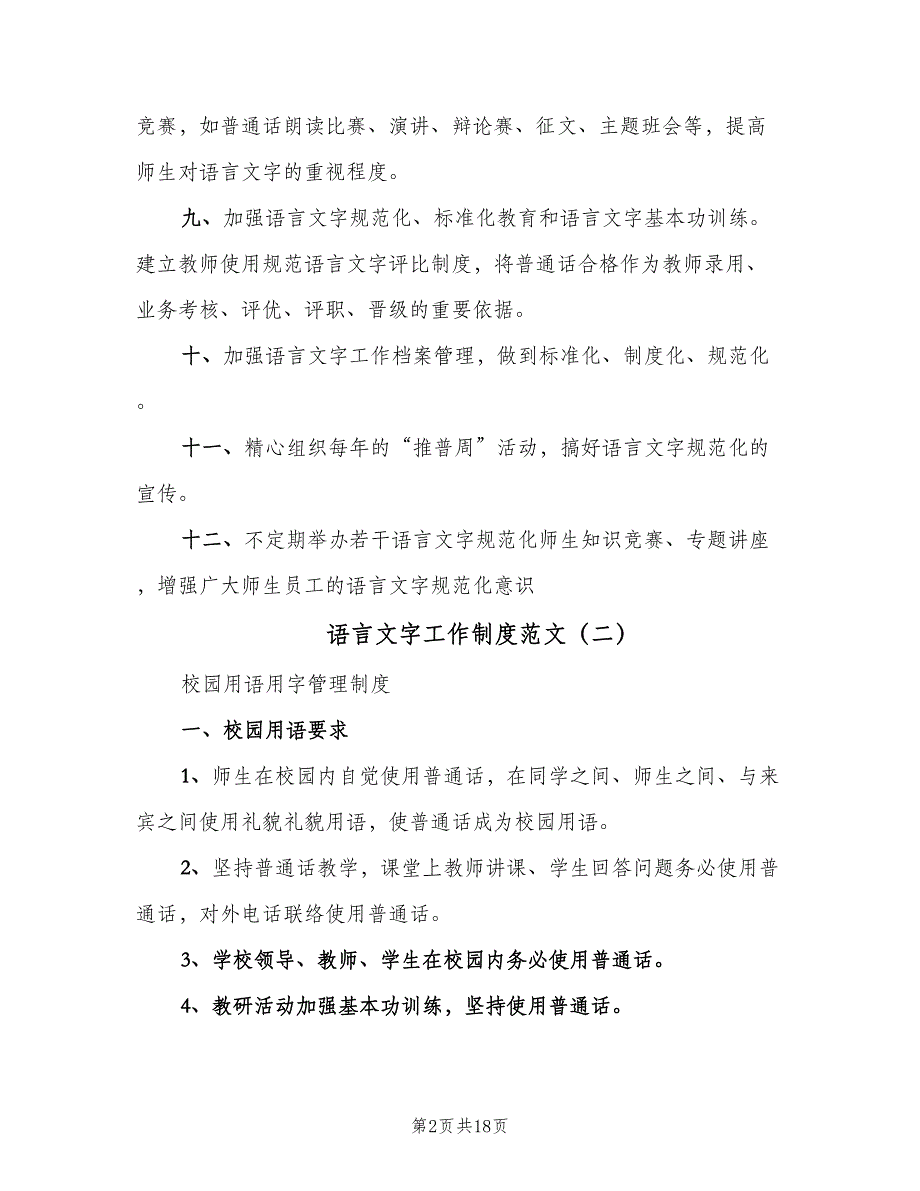 竞赛，如普通话朗读比赛、演讲、辩论赛、征文、主题班会等，提高
师生对语言文字的重视程度。
九、加强语言文字规范化、标准化教育和语言文字基本功训练。
建立教师使用规范语言文字评比制度，将普通话合格作为教师录用、
业务考核、评优、评职、晋级的重要依据。
十、加强语言文字工作档案管理，做到标准化、制度化、规范化
。
十一、精心组织每年的“推普周”活动，搞好语言文字规范化的
宣传。
十二、不定期举办若干语言文字规范化师生知识竞赛、专题讲座
，增强广大师生员工的语言文字规范化意识
语言文字工作制度范文（二）
校园用语用字管理制度
一、校园用语要求
1、师生在校园内自觉使用普通话，在同学之间、师生之间、与来
宾之间使用礼貌礼貌用语，使普通话成为校园用语。
2、坚持普通话教学，课堂上教师讲课、学生回答问题务必使用普
通话，对外电话联络使用普通话。
3、学校领导、教师、学生在校园内务必使用普通话。
4、教研活动加强基本功训练，坚持使用普通话。
第2页共18页